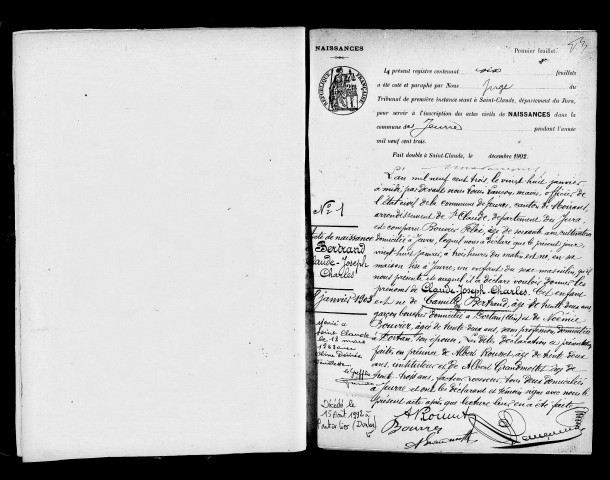 NAISSANCES
Premier feuillet.
Le présent registre contenant six feuillets
a été coté et paraphé par Nous Juge du
Tribunal de première instance séant à Saint-Claude, département du Jura,
pour servir à l'inscription des actes civils de NAISSANCES dans la
commune de Jeurre pendant l'année
mil neuf cent trois.
Fait double à Saint-Claude, le décembre 1902.
RÉPUBLIQUE FRANÇAISE
N° 1
Acte de naissance
Bertrand
Claude-Joseph
Charles
janvier 1903
Marié à
Saint Claude
le 12 mars
Décédé le
15 Août 1992 à
Pontarlier (Doubs)
L'an mil neuf cent trois, le vingt huit janvier
à midi, par devant nous Louis maire, officier de
l'état civil de la commune de Jeurre, canton de Moirans,
arrondissement de St Claude, département du Jura,
est comparu Bouvier âgé de soixante ans, cultivateur
domicilié à Jeurre, lequel nous a déclaré que le présent jour
vingt huit janvier, à trois heures du matin, est né, en sa
maison sise à Jeurre, un enfant du sexe masculin, qu'il
nous présente et auquel il a déclaré vouloir donner les
prénoms de Claude-Joseph-Charles. Cet enfant
est né de Camille Bertrand, âgé de trente deux ans,
garçon boucher, domicilié à Dortan (Ain) et de Noémie
Bouvier, âgée de trente deux ans, sans profession, domiciliée
à Dortan, son épouse. Les dites déclaration et présentation
faites en présence de Albert Roumet, âgé de trente deux
ans, instituteur et de Albert Grandmottet âgé de
trente trois ans, facteur receveur, tous deux domiciliés
à Jeurre et ont les déclarant et témoins signé avec nous le
présent acte après que lecture leur en a été faite.